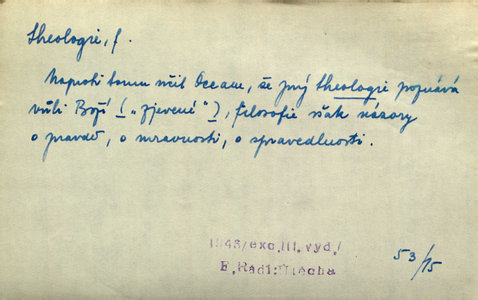 theologie, f.
Naproti tomu učil Occam, že prý theologie poznává
vůli Boží ( „zjevené“ ), filosofie však názory
o pravdě, o mravnosti, o spravedlnosti.
1946/exc.III.vyd./
E.Rádl:Útěcha
53/15